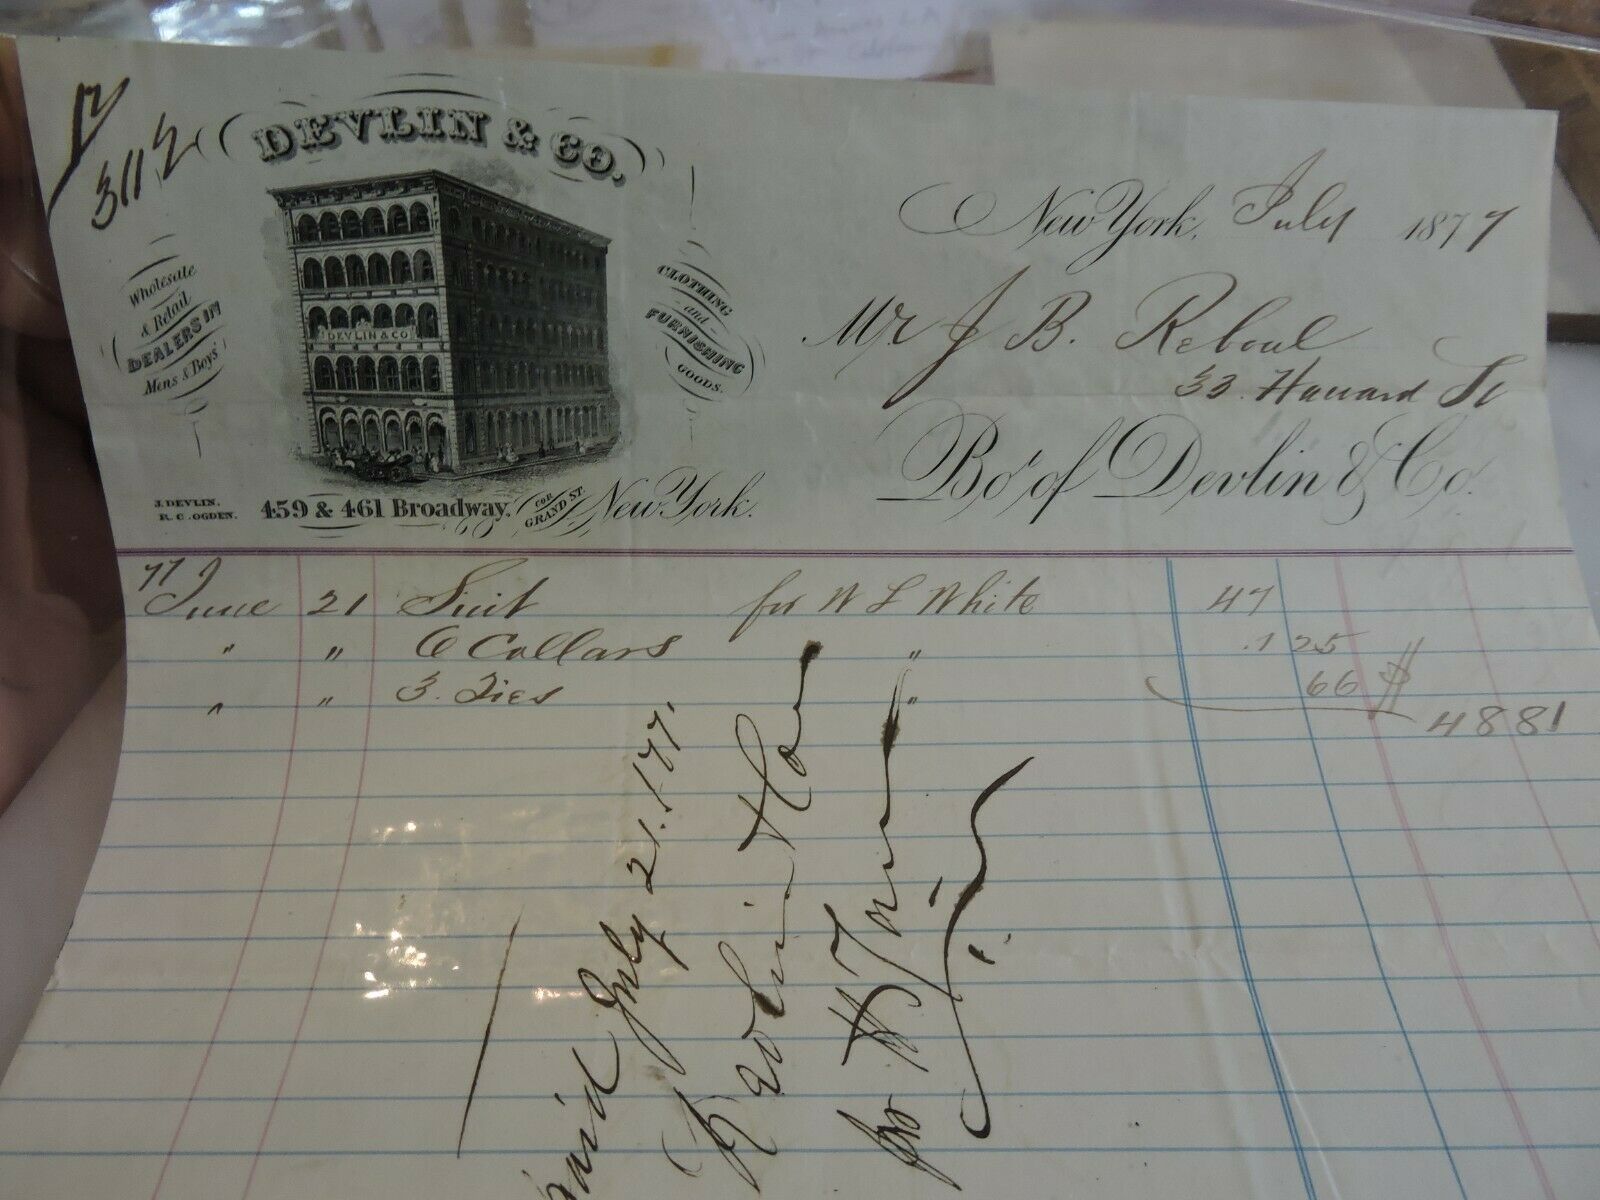 3112
DEVLIN & CO.
Wholesale
& Retail
DEALERS IN
Mens & Boys'
DEVLIN & CO
CLOTHING
and
FURNISHING
GOODS.
J. DEVLIN.
R. C. OGDEN.
459 & 461 Broadway, COR GRAND ST. New York.
New York, July 1877
Mr J B. Reboul
33. Howard St
Bo't of Devlin & Co.
77 June 21 Suit for W L White 47
" " 6 Collars " .1 25
" " 3. Ties " 66
$ 4881
Paid July 21. 177.
Devlin & Co
for